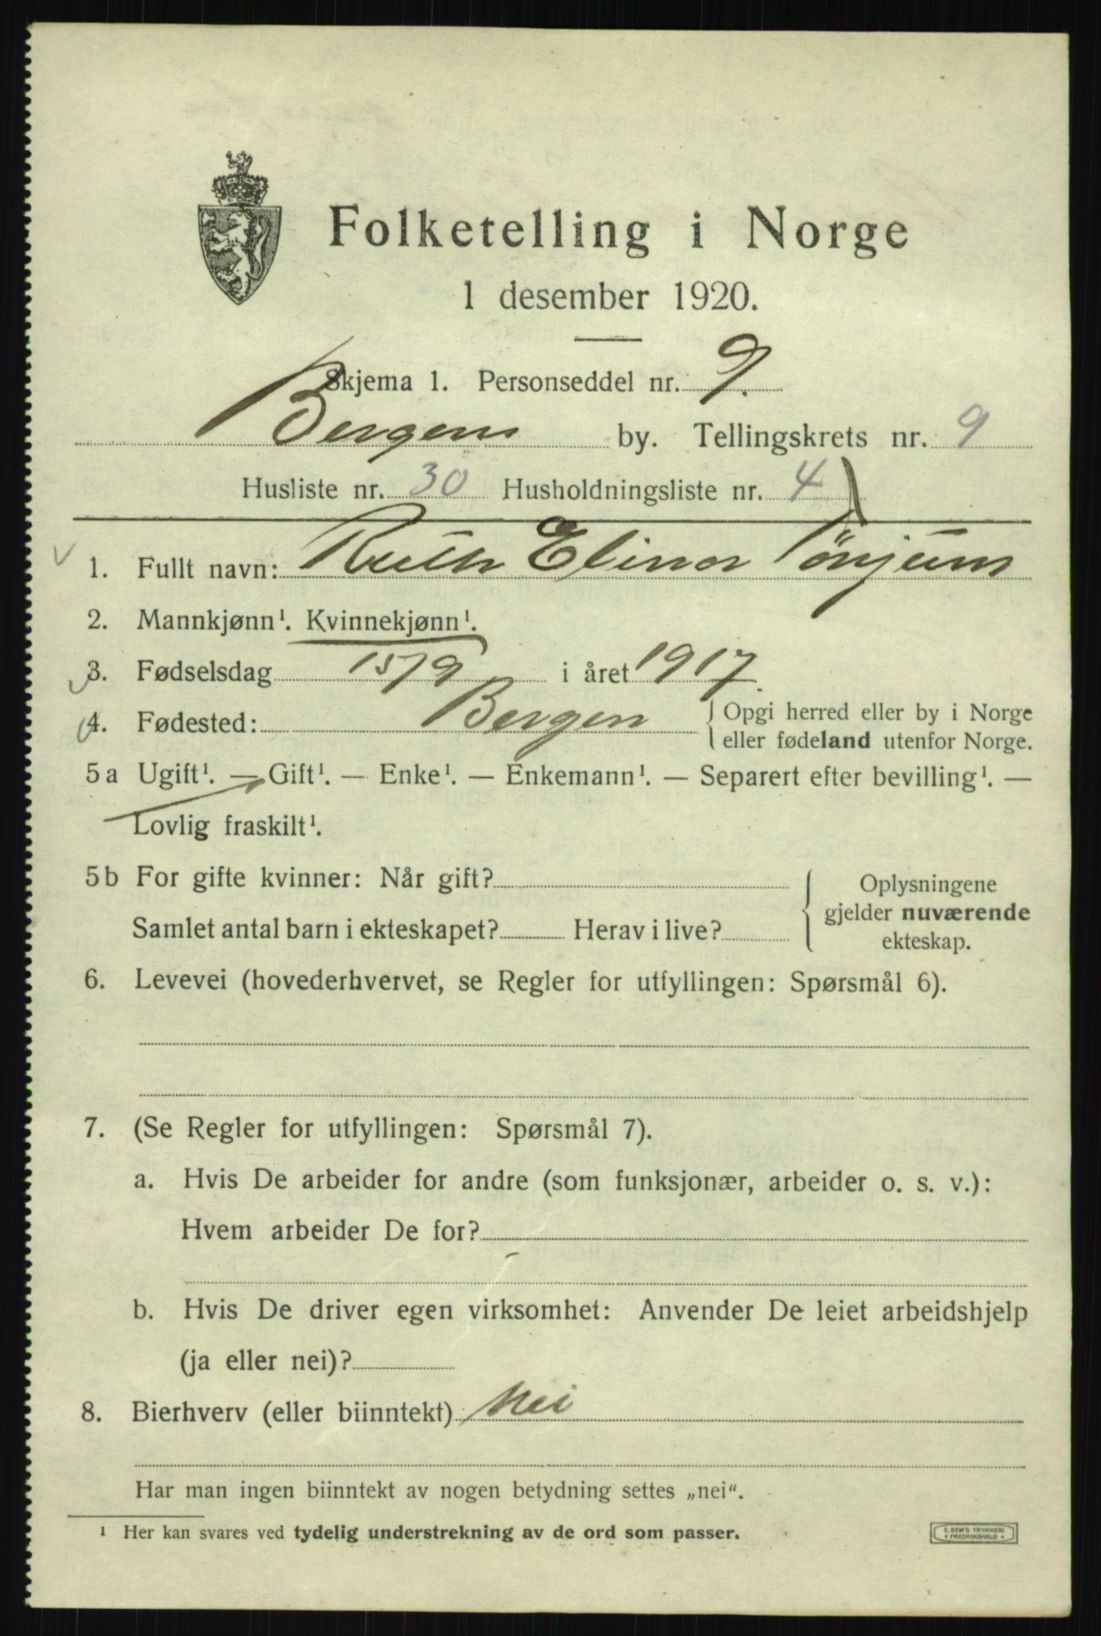 Folketelling i Norge
1 desember 1920.
Skjema 1. Personseddel nr. 9.
Bergens by. Tellingskrets nr. 9
Husliste nr. 30 Husholdningsliste nr. 4
1. Fullt navn: Ruth Elinor Tønjum
2. Mannkjønn¹. Kvinnekjønn¹.
3. Fødselsdag 15/9 i året 1917.
4. Fødested: Bergen { Opgi herred eller by i Norge
eller fødeland utenfor Norge.
5a Ugift¹. — Gift¹. — Enke¹. — Enkemann¹. — Separert efter bevilling¹. —
Lovlig fraskilt¹.
5b For gifte kvinner: Når gift?
Samlet antal barn i ekteskapet? Herav i live?
Oplysningene
gjelder nuværende
ekteskap.
6. Levevei (hovederhvervet, se Regler for utfyllingen: Spørsmål 6).
7. (Se Regler for utfyllingen: Spørsmål 7).
a. Hvis De arbeider for andre (som funksjonær, arbeider o. s. v.):
Hvem arbeider De for?
b. Hvis De driver egen virksomhet: Anvender De leiet arbeidshjelp
(ja eller nei)?
8. Bierhverv (eller biinntekt) Nei
Har man ingen biinntekt av nogen betydning settes „nei“.
¹ Her kan svares ved tydelig understrekning av de ord som passer.
E. SEM'S TRYKKERI
FREDRIKSHALD